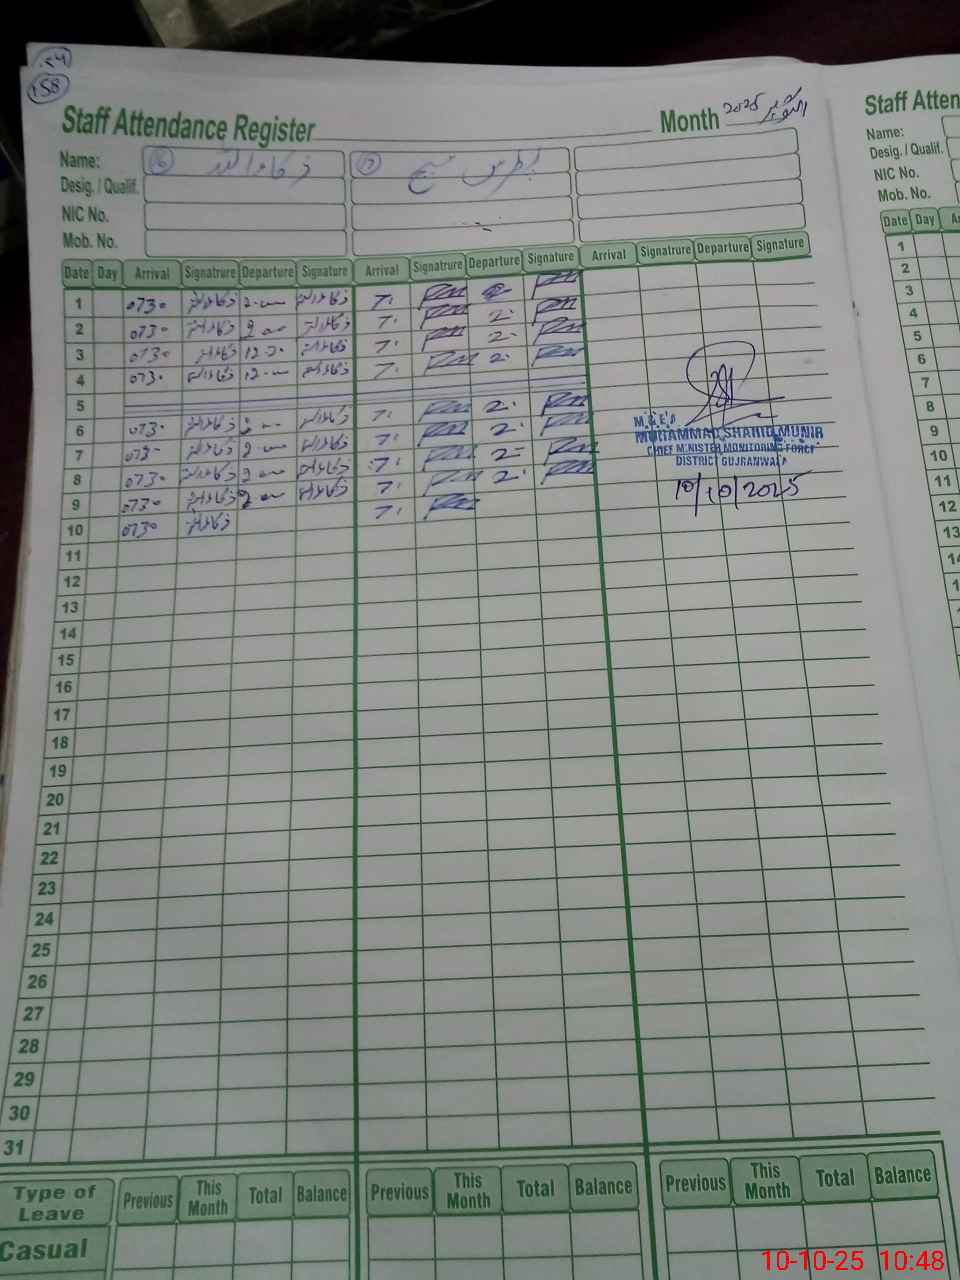 54
158
Staff Attendance Register Month اکتوبر 2025
Name: 16 ذکاء اللہ 17 پطرس مسیح
Desig. / Qualif.
NIC No.
Mob. No.
Date Day Arrival Signatrure Departure Signature Arrival Signatrure Departure Signature Arrival Signatrure Departure Signature
1 0730 ذکاءاللہ 2-00 ذکاءاللہ 7:
2 0730 ذکاءاللہ 2 00 ذکاءاللہ 7: 2:
3 0730 ذکاءاللہ 12-30 ذکاءاللہ 7: 2:
4 0730 ذکاءاللہ 12-00 ذکاءاللہ 7: 2:
5
6 0730 ذکاءاللہ 2 00 ذکاءاللہ 7: 2:
7 0730 ذکاءاللہ 2-00 ذکاءاللہ 7: 2:
8 0730 ذکاءاللہ 2 00 ذکاءاللہ 7: 2:
9 0730 ذکاءاللہ 2 00 ذکاءاللہ 7: 2:
10 0730 ذکاءاللہ 7:
M.& E.A
MUHAMMAD SHAHID MUNIR
CHIEF MINISTER MONITORING FORCE
DISTRICT GUJRANWALA
10/10/2025
11
12
13
14
15
16
17
18
19
20
21
22
23
24
25
26
27
28
29
30
31
Type of Leave Previous This Month Total Balance Previous This Month Total Balance Previous This Month Total Balance
Casual
Staff Atten
Name:
Desig. / Qualif.
NIC No.
Mob. No.
Date Day
1
2
3
4
5
6
7
8
9
10
11
12
13
10-10-25 10:48